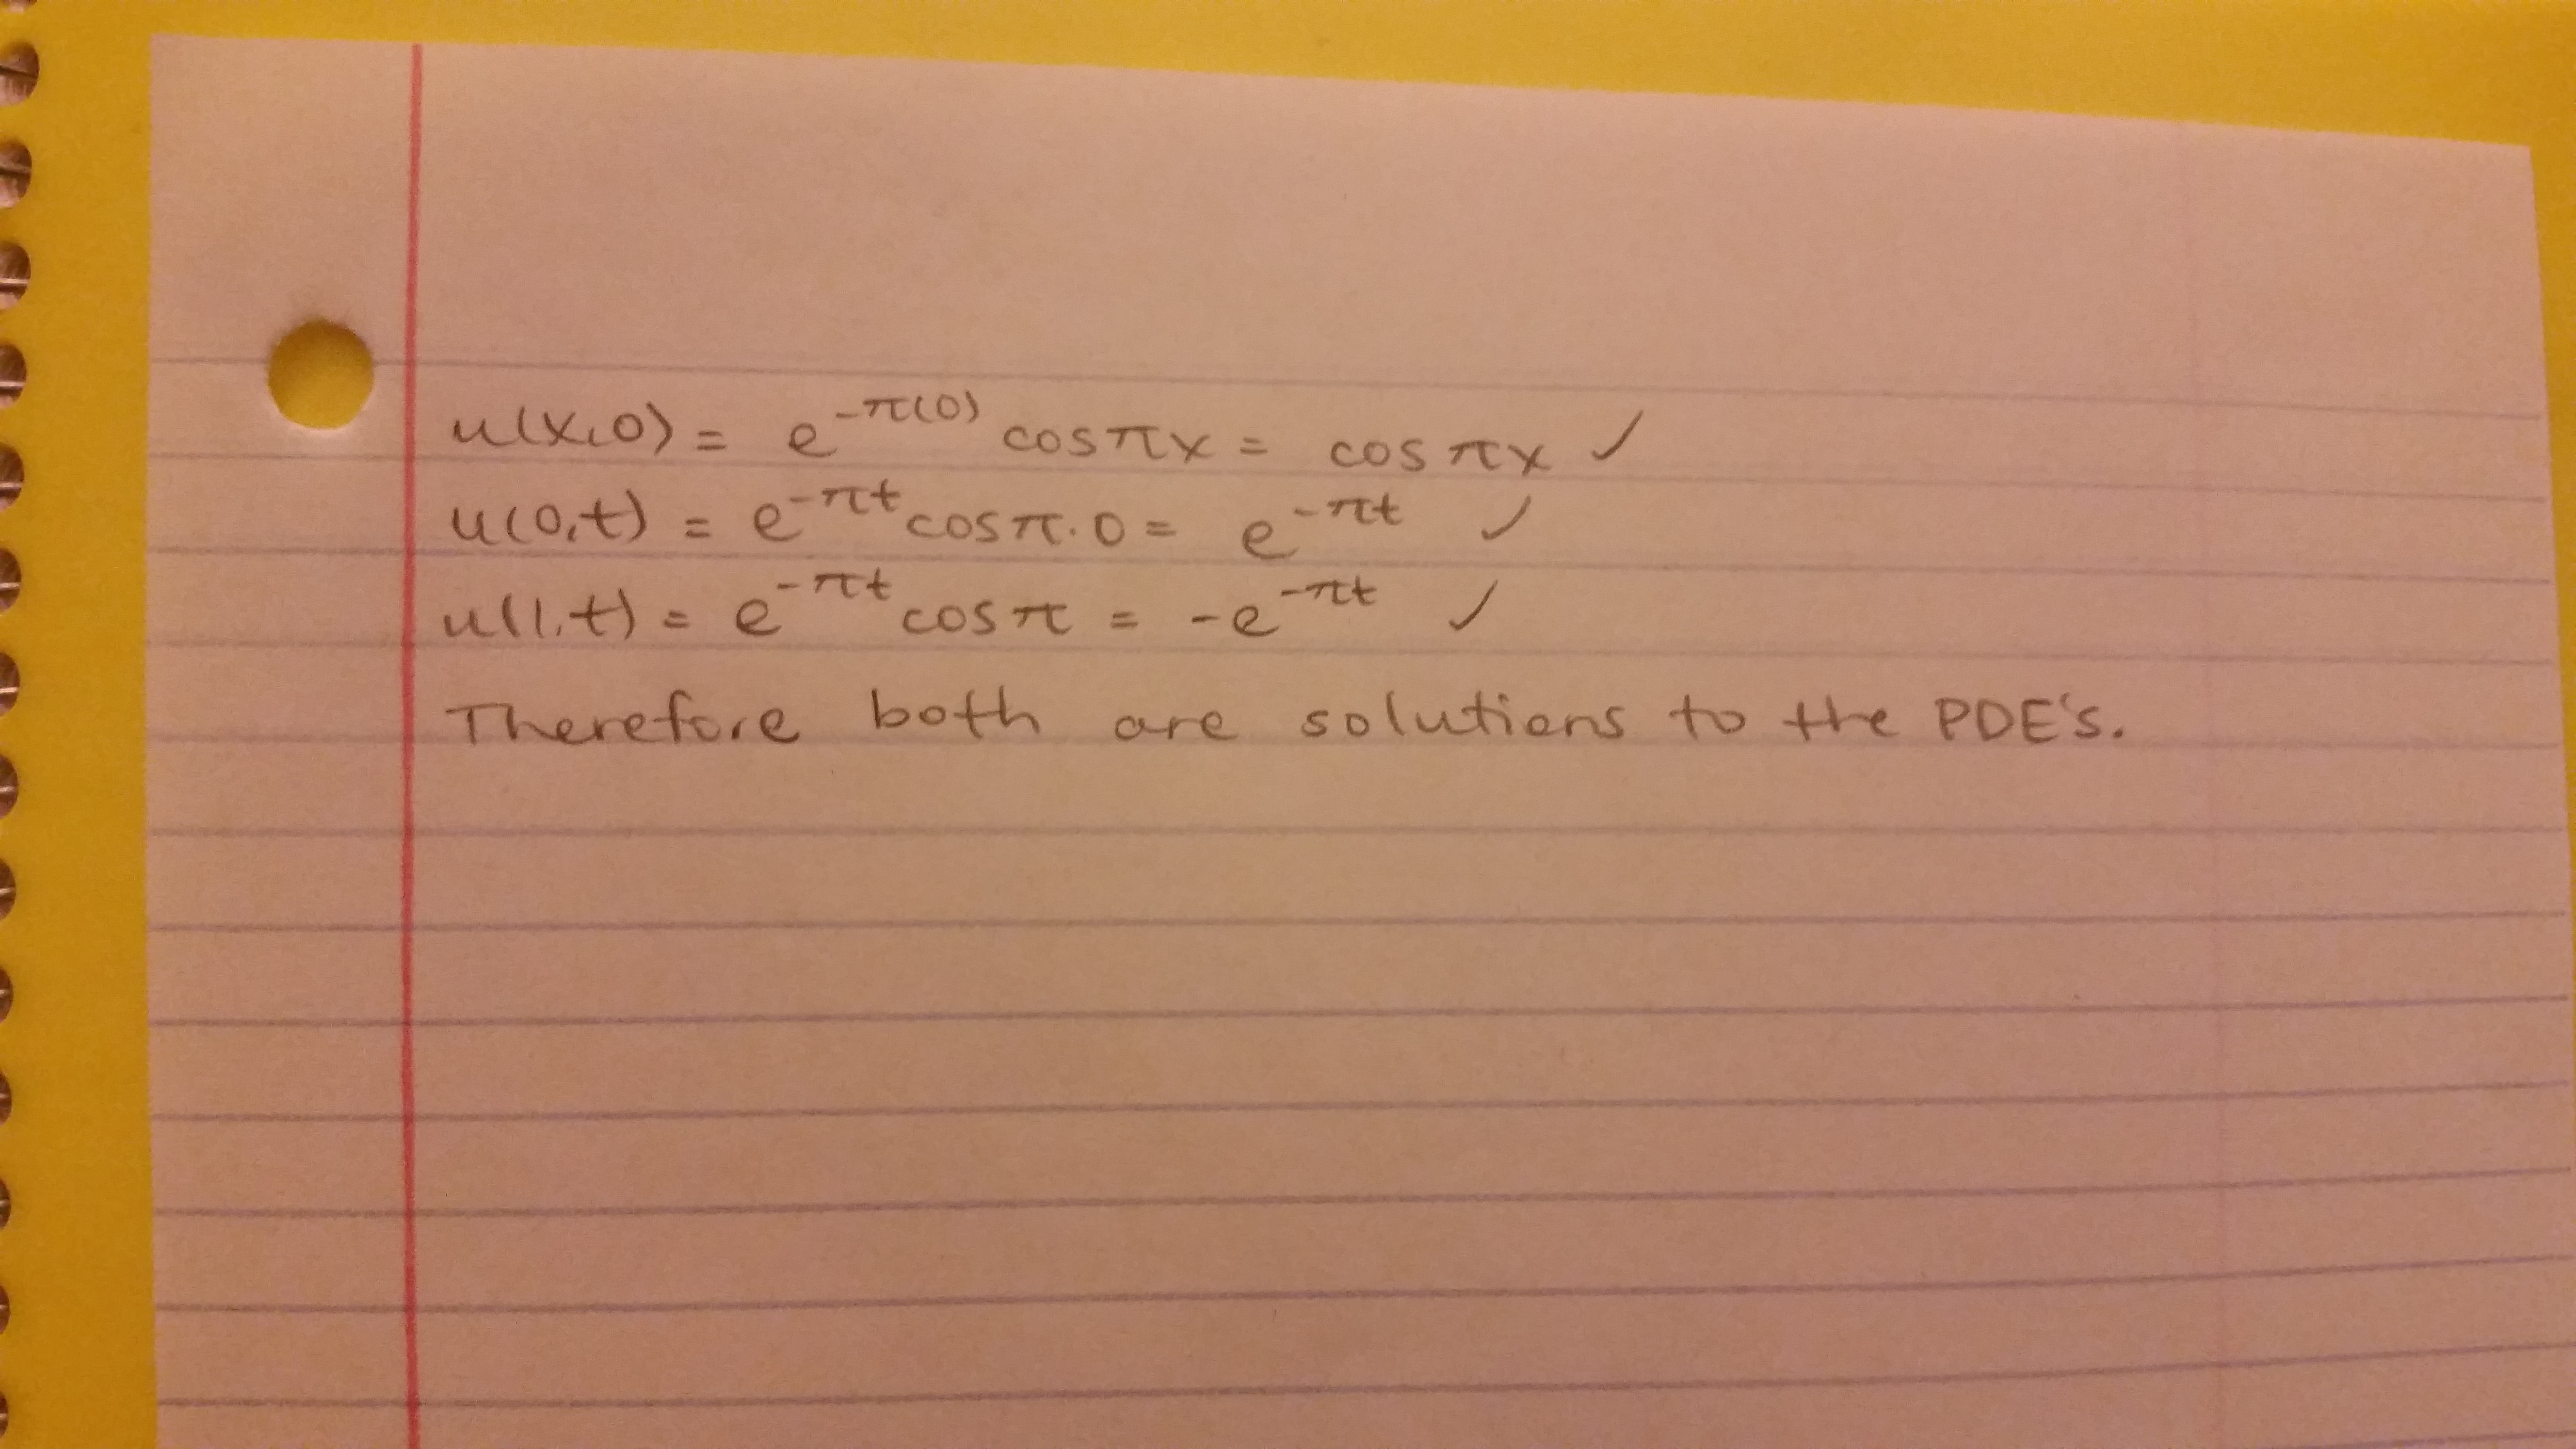 u(x,0) = e^{-π(0)} cosπx = cos πx ✓
u(0,t) = e^{-πt} cosπ·0 = e^{-πt} ✓
u(1,t) = e^{-πt} cosπ = -e^{-πt} ✓
Therefore both are solutions to the PDE's.